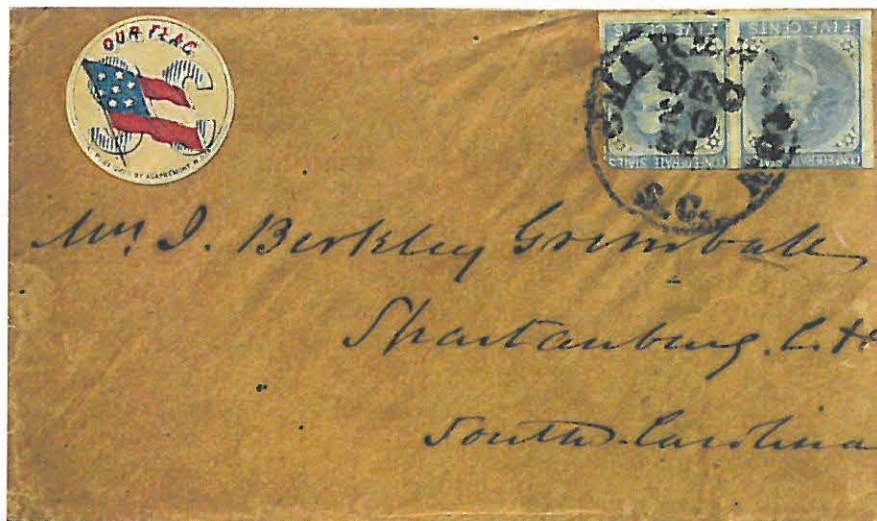 OUR FLAG
CS
FIVE CENTS
FIVE CENTS
CONFEDERATE STATES
CONFEDERATE STATES
DEC
20
S.C.
Mrs J. Berkley Grimball
Spartanburg. C.H
South Carolina